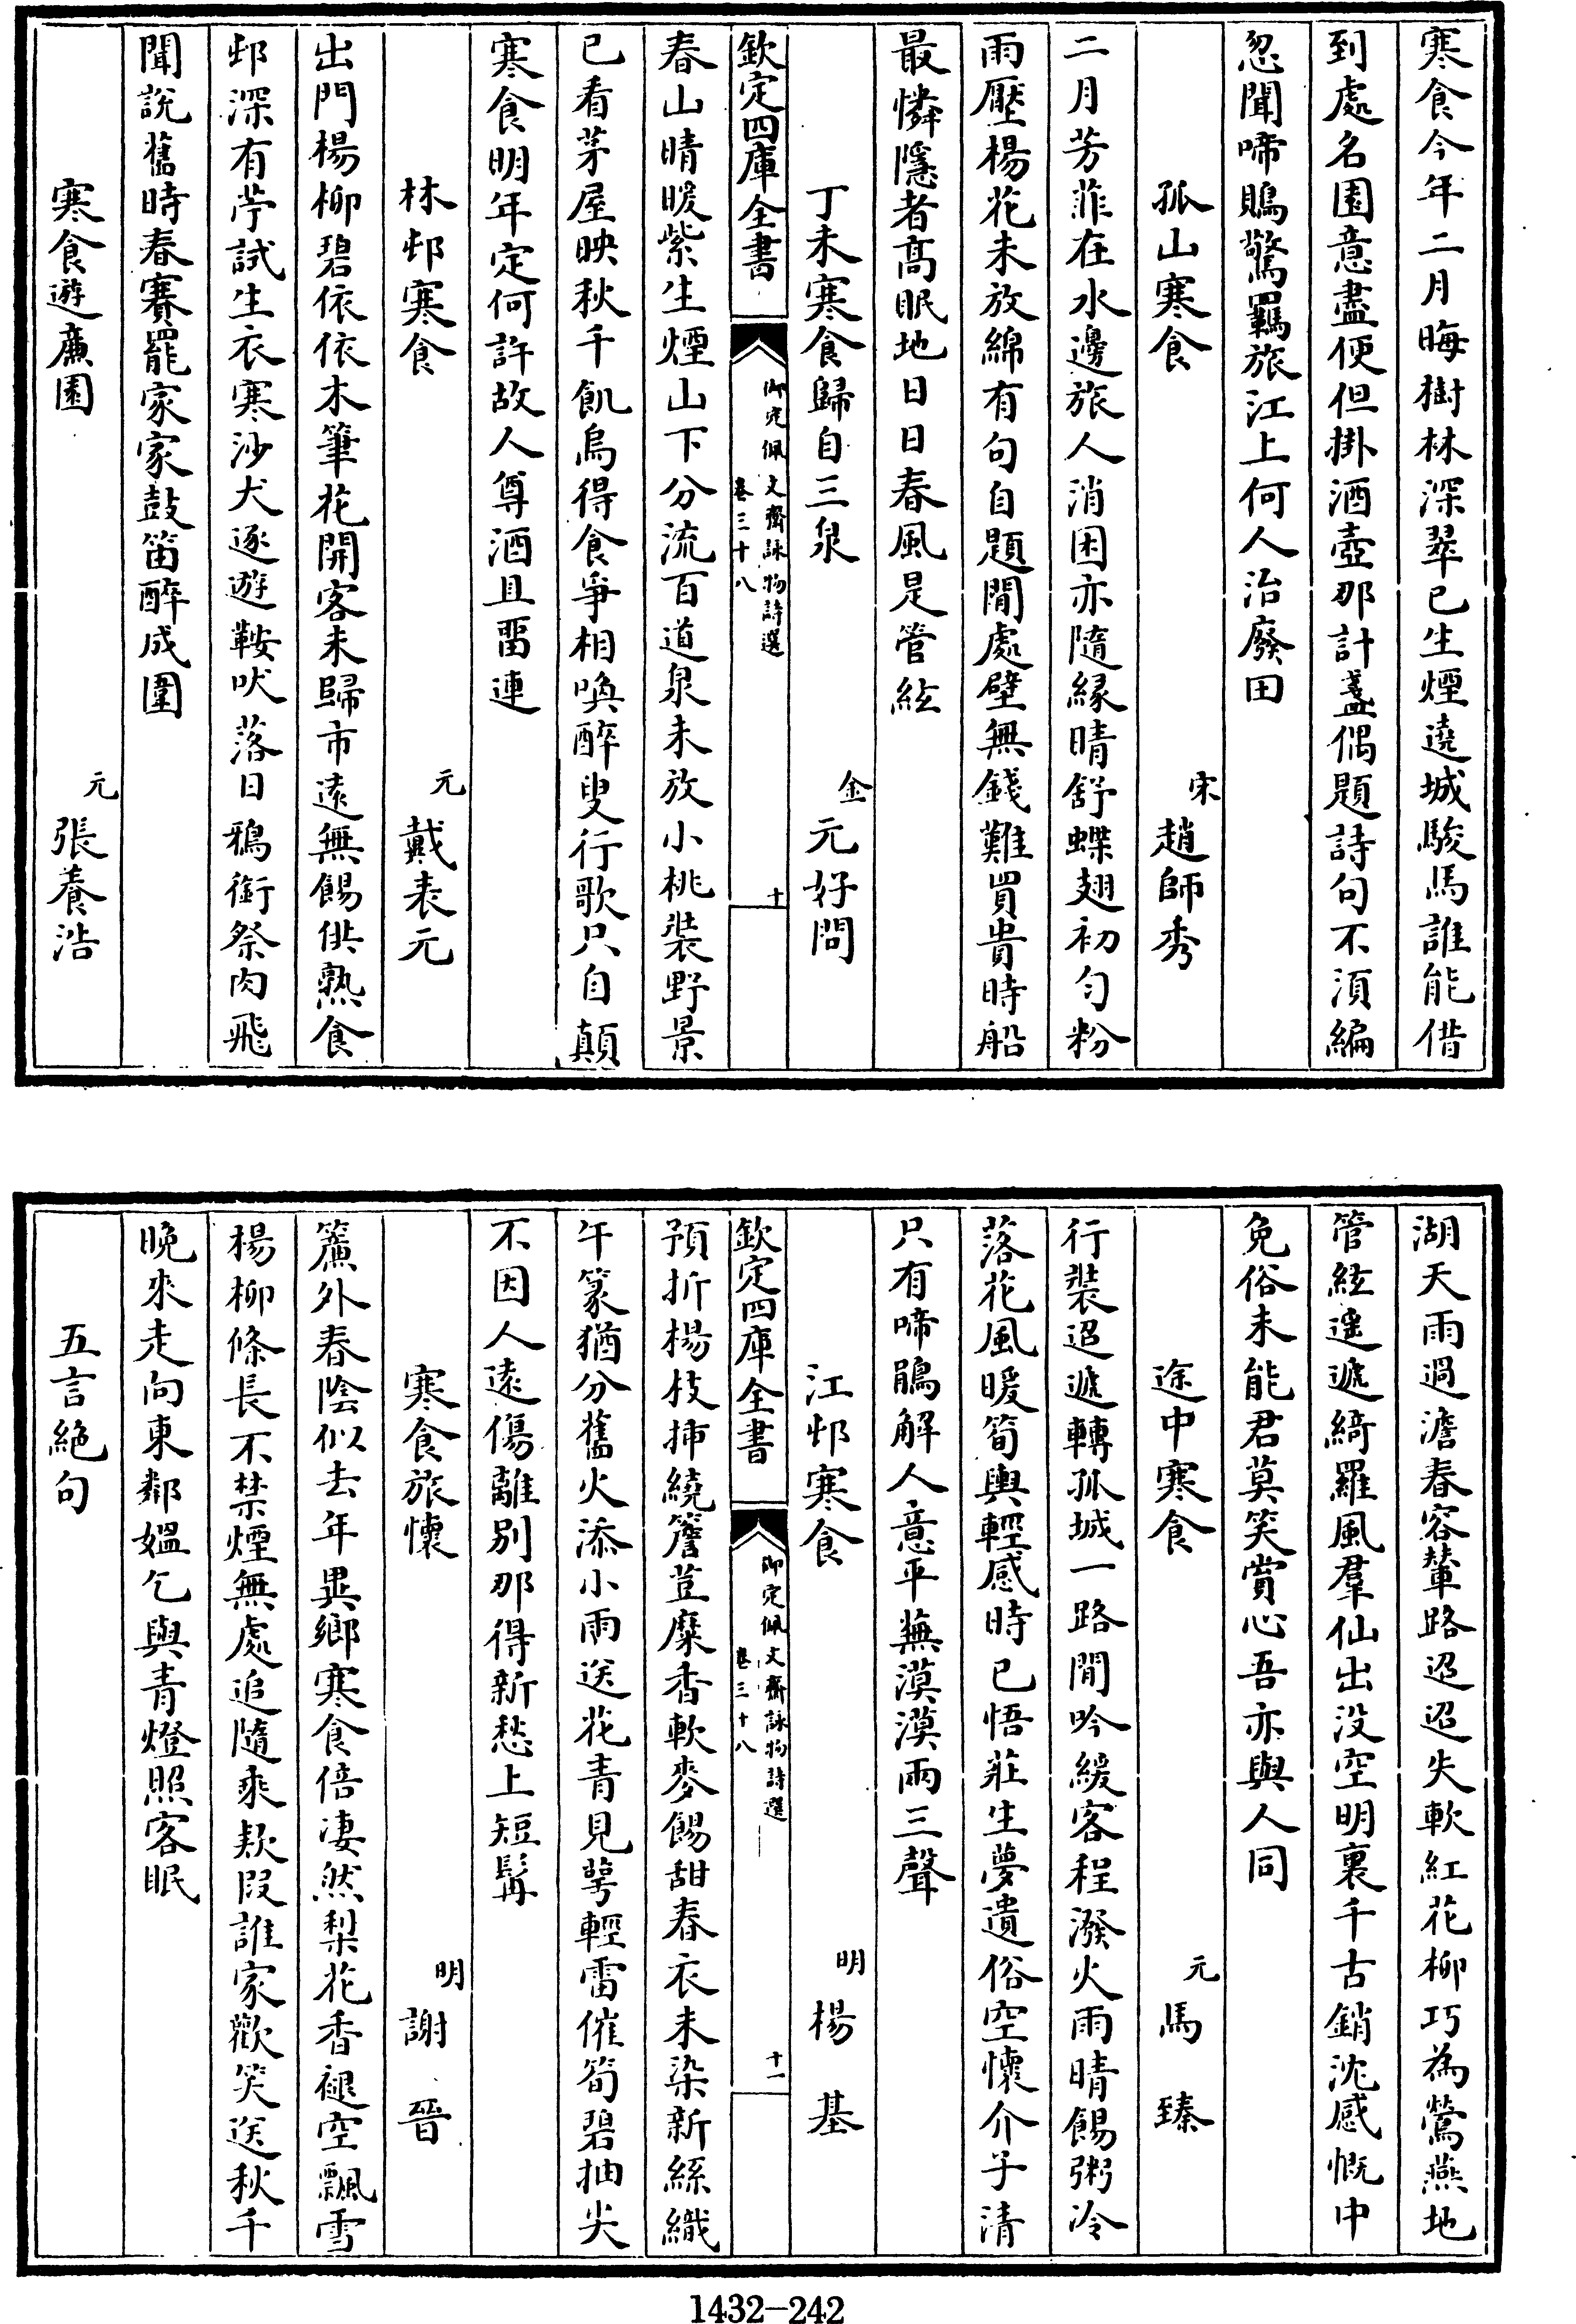 寒食今年二月晦樹林深翠已生煙遶城駿馬誰能借
到處名園意盡便但掛酒壺那計盞偶題詩句不須編
忽聞啼鵙驚羈旅江上何人治廢田
孤山寒食 宋 趙師秀
二月芳菲在水邊旅人消困亦隨緣晴舒蝶翅初勻粉
雨壓楊花未放綿有句自題閒處壁無錢難買貴時船
最憐隱者高眠地日日春風是管絃
丁未寒食歸自三泉 金 元好問
欽定四庫全書 御定佩文齋詠物詩選 卷三十八 十
春山晴暖紫生煙山下分流百道泉未放小桃裝野景
已看茅屋映秋千飢烏得食爭相喚醉叟行歌只自顛
寒食明年定何許故人尊酒且畱連
林邨寒食 元 戴表元
出門楊柳碧依依木筆花開客未歸市遠無餳供熟食
邨深有苧試生衣寒沙犬逐遊鞍吠落日鴉銜祭肉飛
聞說舊時春賽罷家家鼓笛醉成圍
寒食遊廉園 元 張養浩
湖天雨過澹春容輦路迢迢失軟紅花柳巧為鶯燕地
管絃遥遞綺羅風羣仙出没空明裏千古銷沈感慨中
免俗未能君莫笑賞心吾亦與人同
途中寒食 元 馬臻
行裝迢遞轉孤城一路閒吟緩客程潑火雨晴餳粥冷
落花風暖筍輿輕感時已悟莊生夢遺俗空懷介子清
只有啼鵑解人意平蕪漠漠兩三聲
江邨寒食 明 楊基
欽定四庫全書 御定佩文齋詠物詩選 卷三十八 十一
預折楊枝插繞簷荳糜香軟麥餳甜春衣未染新絲織
午篆猶分舊火添小雨送花青見萼輕雷催筍碧抽尖
不因人遠傷離別那得新愁上短髯
寒食旅懷 明 謝晉
簾外春陰似去年異鄉寒食倍凄然梨花香褪空飄雪
楊柳條長不禁煙無處追隨乘款段誰家歡笑送秋千
晚來走向東鄰媼乞與青燈照客眠
五言絕句
1432-242